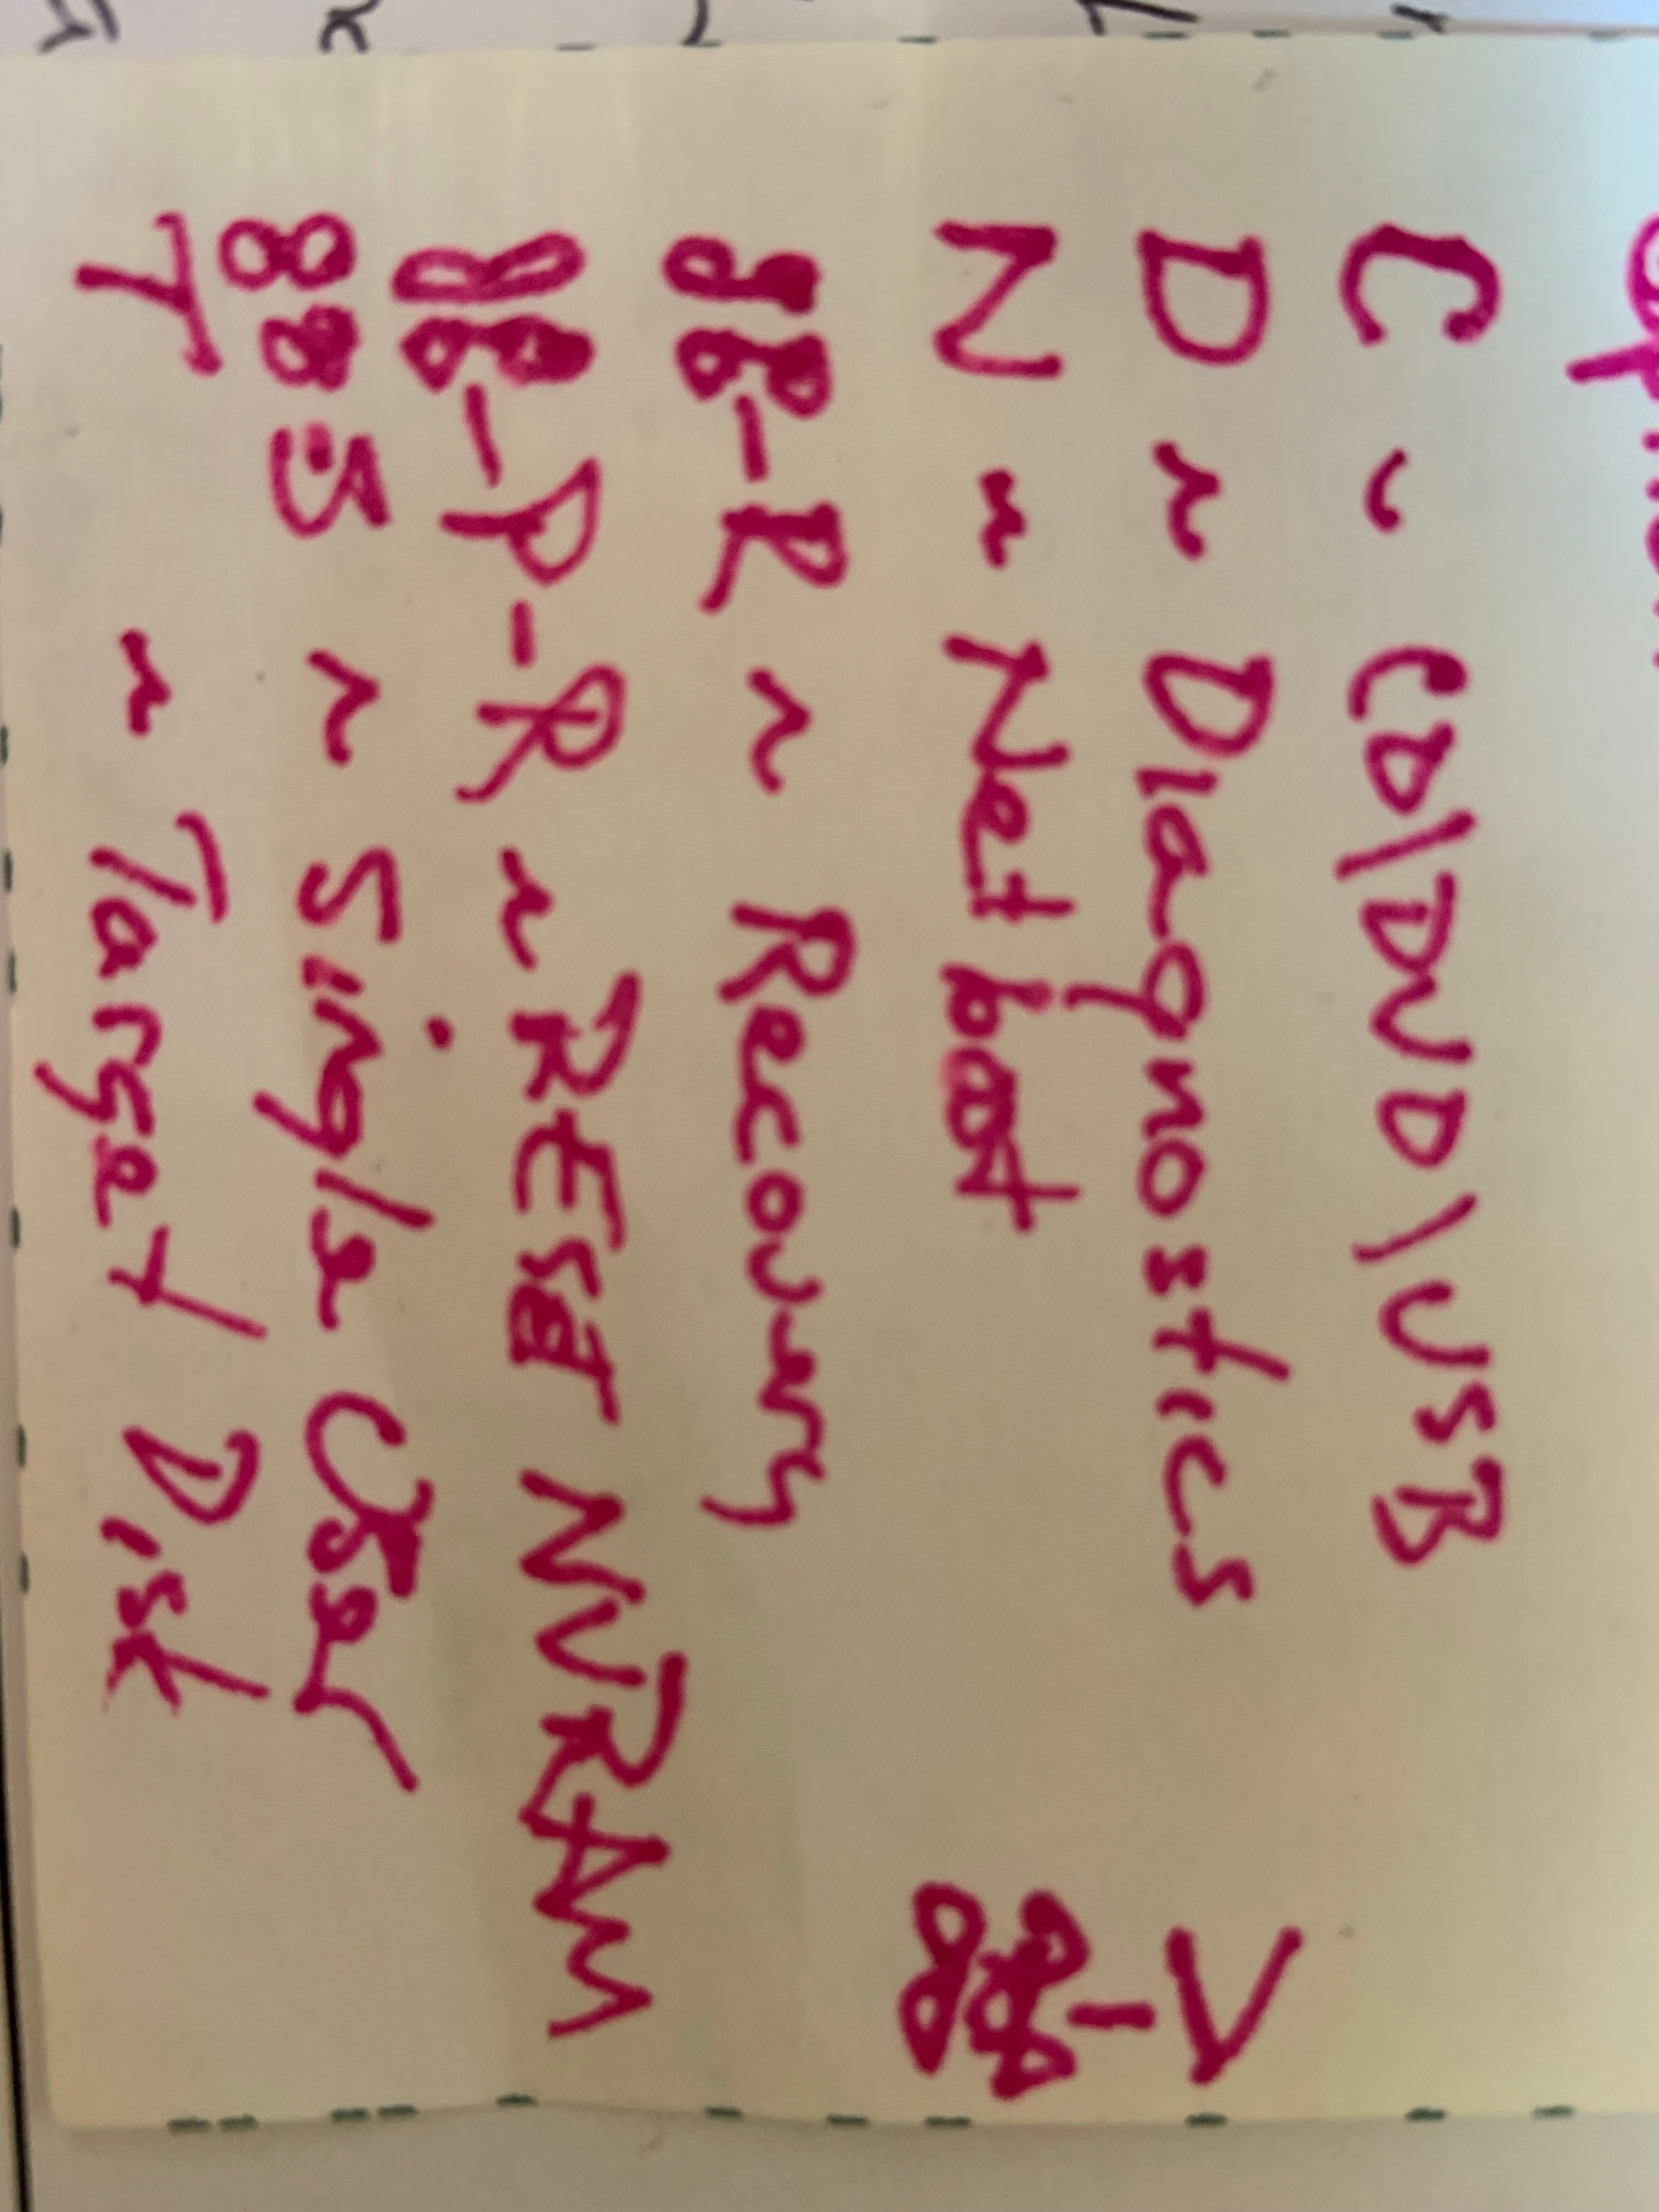 C ~ CD/DVD/USB
D ~ Diagnostics
N ~ Netboot
⌘-R ~ Recovery
⌘-P-R ~ RESET NVRAM
⌘ S ~ Single User
T ~ Target Disk
⌘-V